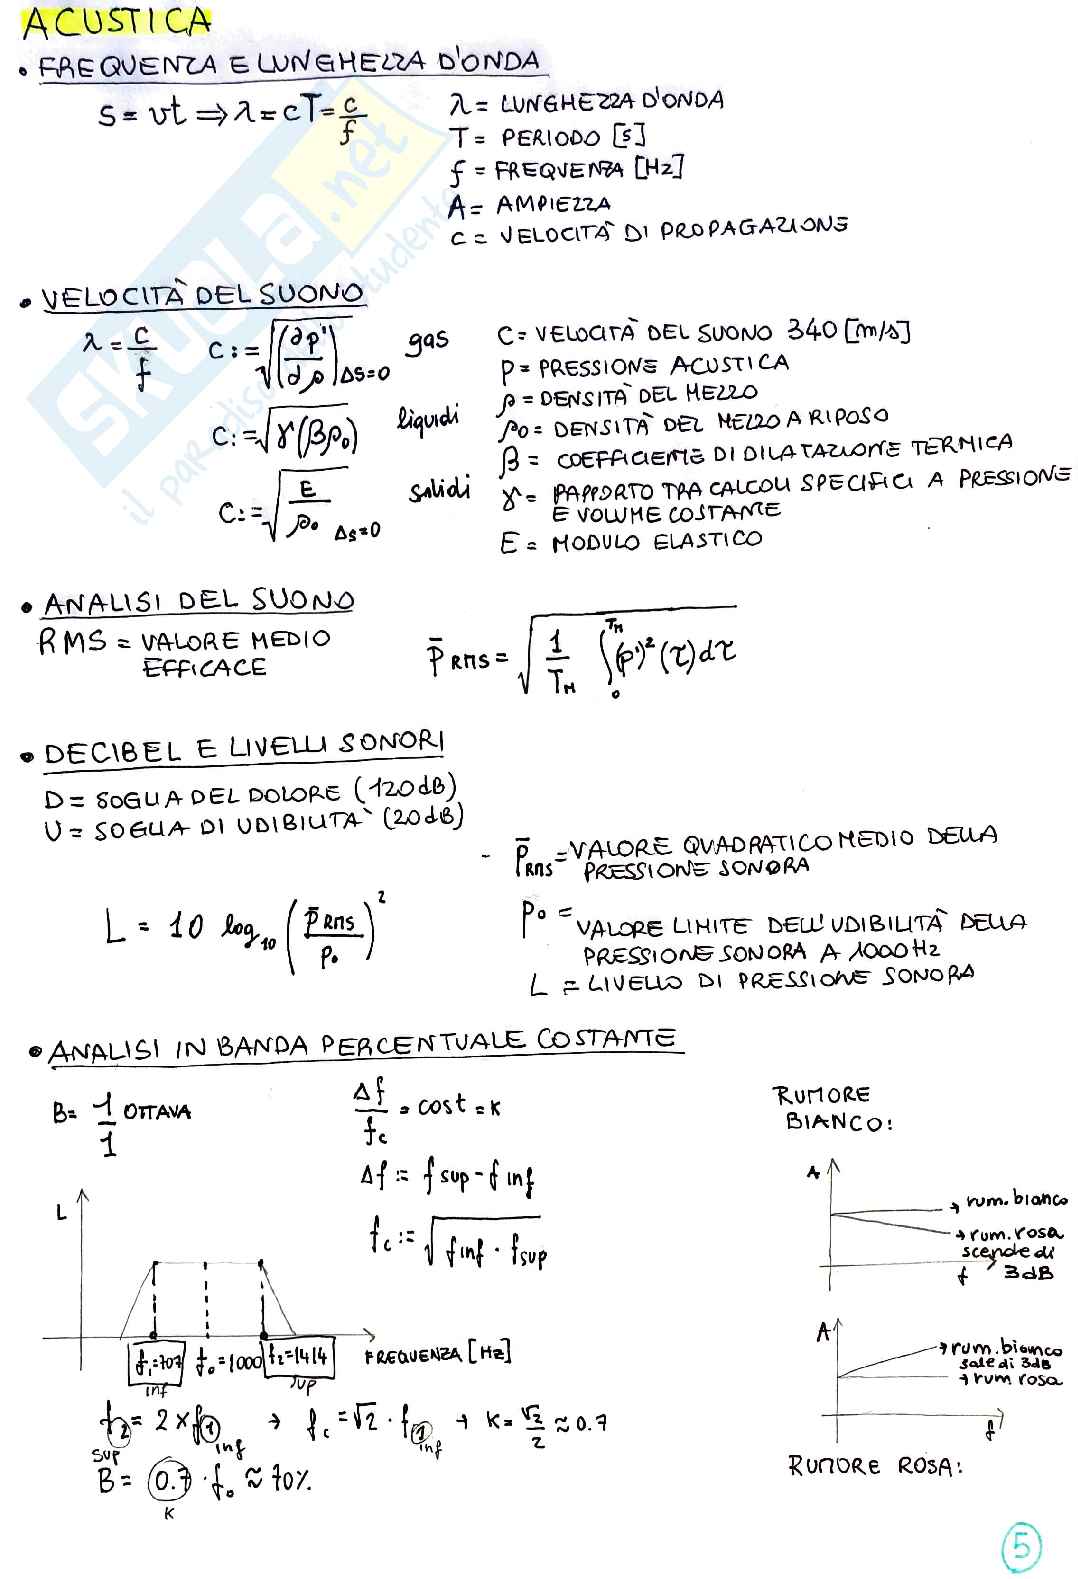 ACUSTICA
• FREQUENZA E LUNGHEZZA D'ONDA
S = vt ⇒ λ = cT = c/f
λ = LUNGHEZZA D'ONDA
T = PERIODO [s]
f = FREQUENZA [Hz]
A = AMPIEZZA
c = VELOCITÀ DI PROPAGAZIONE
SKUOLA.net
il paradiso dello studente
• VELOCITÀ DEL SUONO
λ = c/f
C := √(∂p'/∂ρ) Δs=0 gas
C := √γ(βρ₀) liquidi
C := √E/ρ₀ Δs=0 solidi
C = VELOCITÀ DEL SUONO 340 [m/s]
P = PRESSIONE ACUSTICA
ρ = DENSITÀ DEL MEZZO
ρ₀ = DENSITÀ DEL MEZZO A RIPOSO
β = COEFFICIENTE DI DILATAZIONE TERMICA
γ = RAPPORTO TRA CALCOLI SPECIFICI A PRESSIONE
E VOLUME COSTANTE
E = MODULO ELASTICO
• ANALISI DEL SUONO
RMS = VALORE MEDIO
EFFICACE
p̄ RMS = √ 1/T_M ∫₀^T_M (p')² (τ) dτ
• DECIBEL E LIVELLI SONORI
D = SOGLIA DEL DOLORE (120 dB)
U = SOGLIA DI UDIBILITA' (20 dB)
- p̄ RMS = VALORE QUADRATICO MEDIO DELLA
PRESSIONE SONORA
L = 10 log₁₀ (p̄ RMS / p₀)²
P₀ = VALORE LIMITE DELL'UDIBILITÀ DELLA
PRESSIONE SONORA A 1000 Hz
L = LIVELLO DI PRESSIONE SONORA
• ANALISI IN BANDA PERCENTUALE COSTANTE
B = 1/1 OTTAVA
Δf/fc = cost = K
Δf := f sup - f inf
fc := √f inf · f sup
L
f₁=707
inf
f₀=1000
f₂=1414
sup
FREQUENZA [Hz]
f₂ = 2 × f₁ → fc = √2 · f₁ → K = √2/2 ≈ 0.7
sup inf inf
B = 0.7 · f₀ ≈ 70%
K
RUMORE
BIANCO:
A
→ rum. bianco
→ rum. rosa
scende di
f 3dB
A
→ rum. bianco
sale di 3dB
→ rum rosa
f
RUMORE ROSA:
5